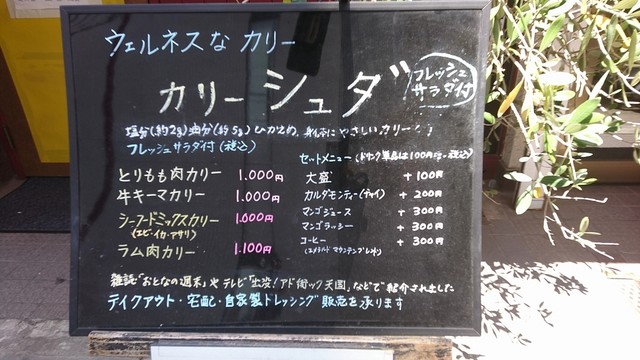 ウェルネスな カリー
カリーシュダ
フレッシュ
サラダ付
塩分(約2g)油分(約5g)ひかえめ、身体にやさしいカリー!!
フレッシュサラダ付(税込)
とりもも肉カリー 1.000円
牛キーマカリー 1.000円
シーフードミックスカリー 1.000円
(エビ・イカ・アサリ)
ラム肉カリー 1.100円
セットメニュー(ドリンク単品は100円増・税込)
大盛 + 100円
カルダモンティー(チャイ) + 200円
マンゴジュース + 300円
マンゴラッシー + 300円
コーヒー + 300円
(エメラルドマウンテンブレンド)
雑誌「おとなの週末」や テレビ「出没!アド街ック天国」などで紹介されました
テイクアウト・宅配・自家製ドレッシング販売を承ります